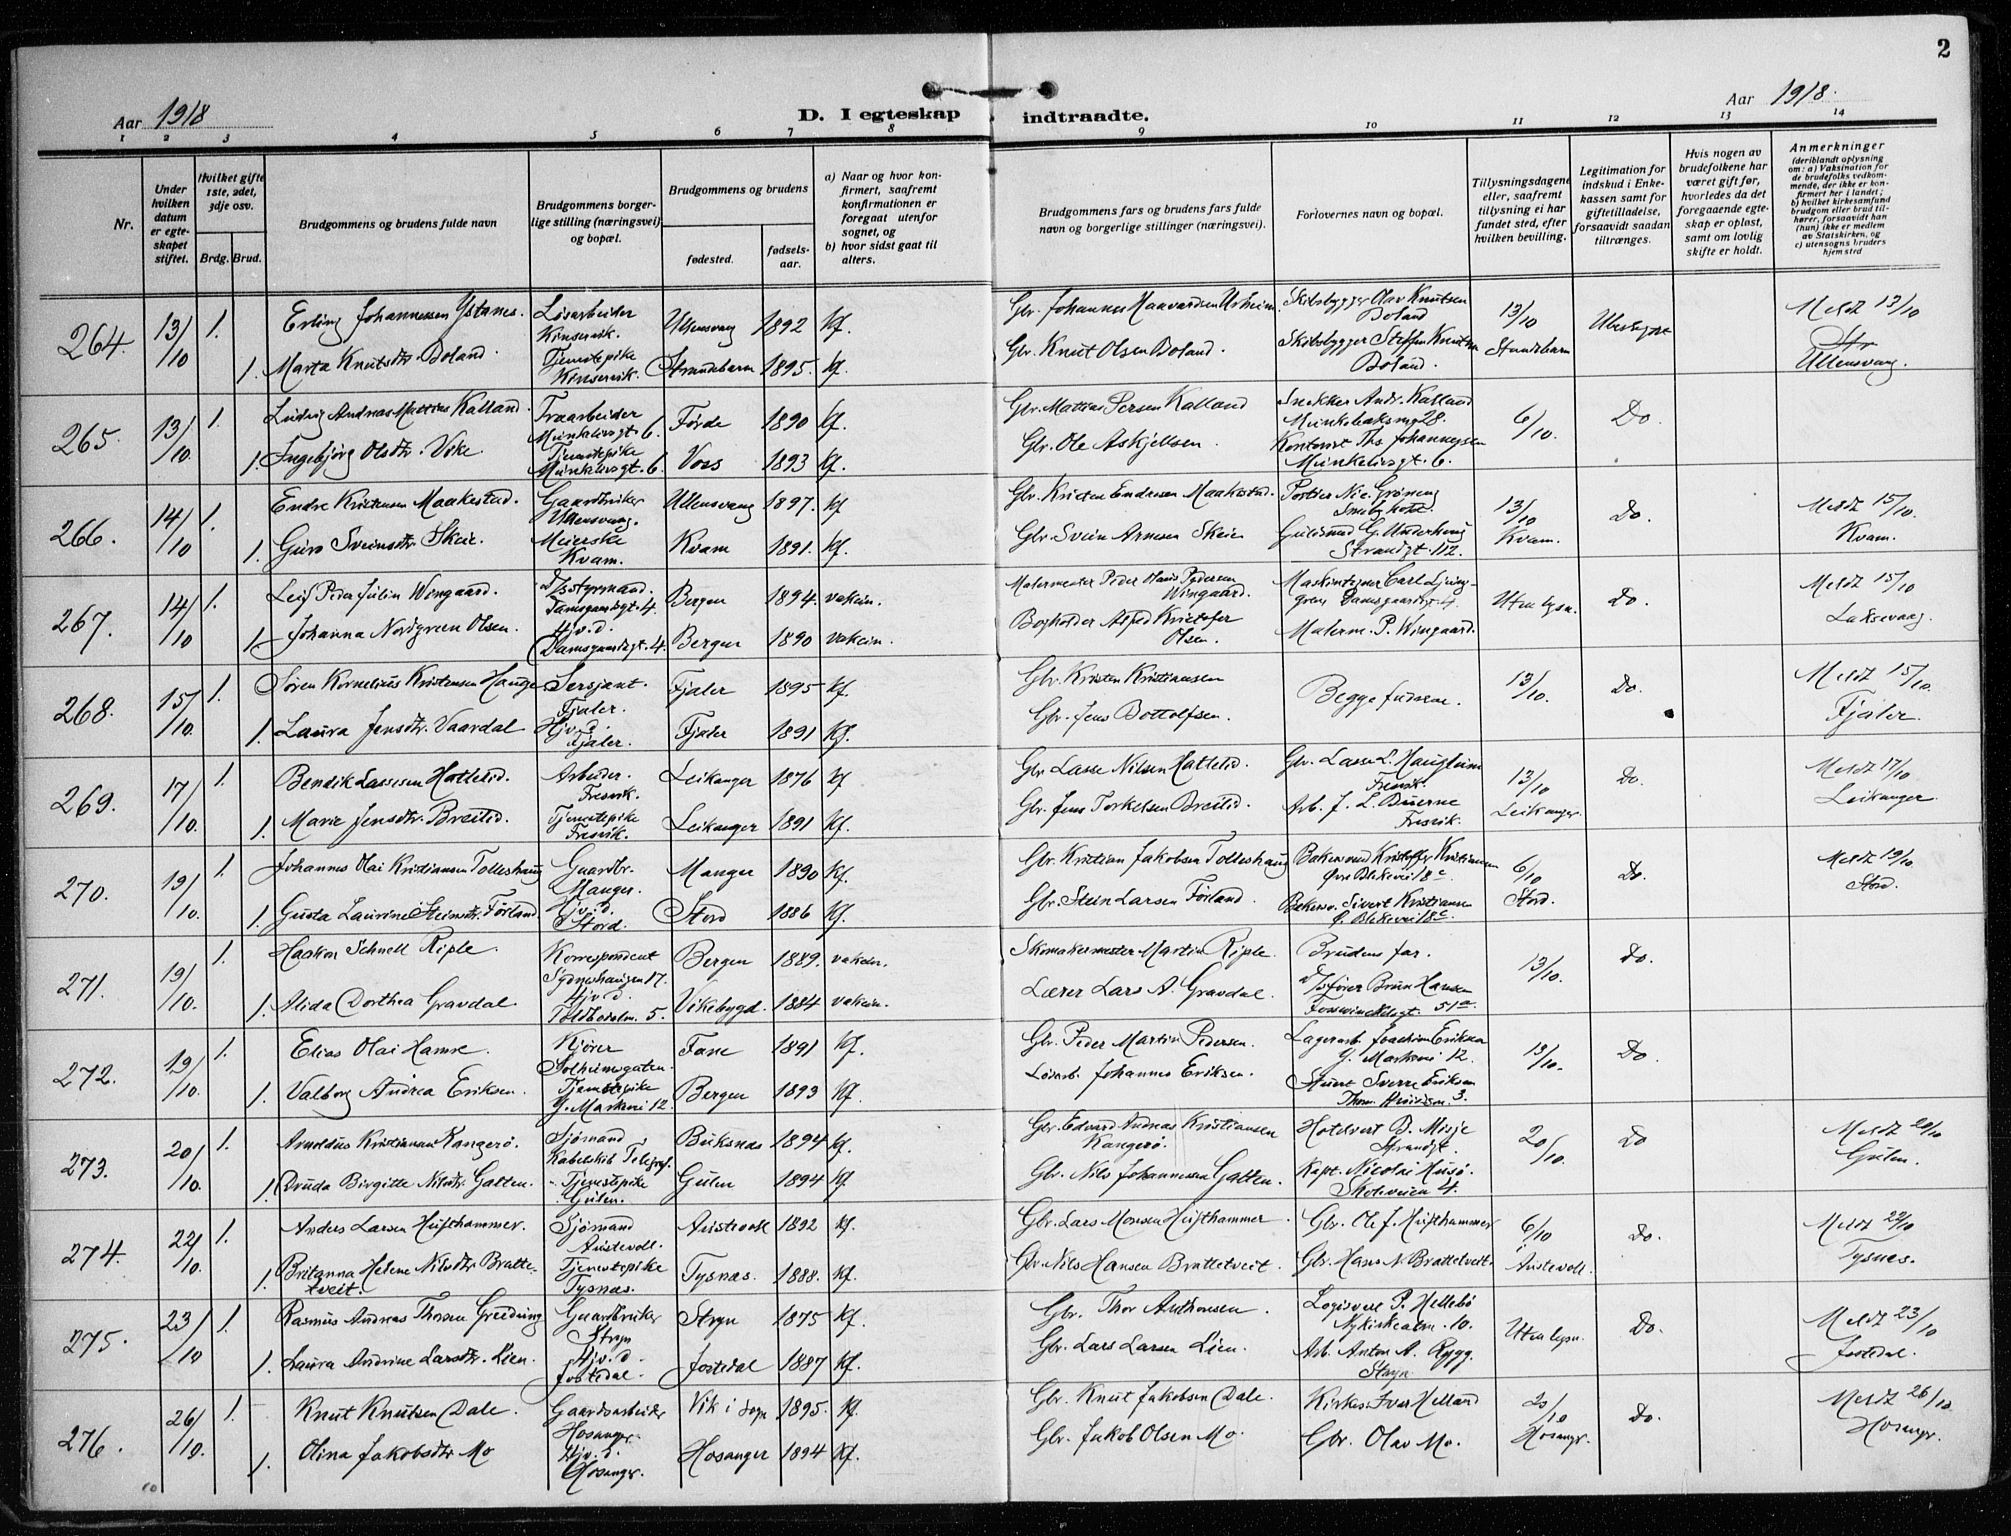 2
Aar 1918
D. I egteskap indtraadte.
Aar 1918.
1 2 3 4 5 6 7 8 9 10 11 12 13 14
Nr.
Under hvilken datum er egteskapet stiftet.
Hvilket gifte 1ste, 2det, 3dje osv.
Brdg. Brud.
Brudgommens og brudens fulde navn
Brudgommens borgerlige stilling (næringsvei) og bopæl.
Brudgommens og brudens
fødested.
fødselsaar.
a) Naar og hvor konfirmert, saafremt konfirmationen er foregaat utenfor sognet, og
b) hvor sidst gaat til alters.
Brudgommens fars og brudens fars fulde navn og borgerlige stillinger (næringsvei).
Forlovernes navn og bopæl.
Tillysningsdagene eller, saafremt tillysning ei har fundet sted, efter hvilken bevilling.
Legitimation for indskud i Enkekassen samt for giftetilladelse, forsaavidt saadan tiltrænges.
Hvis nogen av brudefolkene har været gift før, hvorledes da det foregaaende egteskap er opløst, samt om lovlig skifte er holdt.
Anmerkninger
(deriblandt oplysning om: a) Vaksination for de brudefolks vedkommende, der ikke er konfirmert her i landet; b) hvilket kirkesamfund brudgom eller brud tilhører, forsaavidt han (hun) ikke er medlem av Statskirken, og c) utensogns bruders hjemsted
264. 13/10 1. Erling Johannessen Ystanes. Løsarbeider Kinservik. Ullensvang 1892 Kf. Gbr. Johannes Haavardsen Skibsbygger Olav Knutsen Boland 13/10 Meldt 13/10
1. Marta Knutsdtr. Boland. Tjenestepike Kinservik. Strandebarm 1895. Kf. Gbr. Knut Olsen Boland. Skibsbygger Steffen Knutsen Boland. Strandebarm Ullensvang.
265. 13/10 1. Ludvig Andreas Mattias Kalland. Træarbeider Munkelivsgt. 6. Førde 1890 Kf. Gbr. Mattias Persen Kalland Snekker Andr. Kalland 28. 6/10. Do.
1. Ingebjørg Olsdtr. Vike. Tjenestepike Munkelivsgt. 6. Voss 1893 Kf. Gbr. Ole Askjellsen. Kontorist Ths. Johannesen Munkelivsgt. 6.
266. 14/10 1. Endre Kristensen Maakestad. Gaardbruker Ullensvang. Ullensvang 1897. Kf Gbr. Kristen Endresen Maakestad. Portier Nic. Grøning 13/10 Do. Meldt 15/10.
1. Guro Sveinsdtr. Skeie. Meierske Kvam. Kvam 1891. Kf. Gbr. Svein Arnesen Skeie Strandgt. 112. Kvam. Kvam.
267. 14/10 1. Leif Peder Julin Wingaard. D/sstyrmand. Damsgaardsgt. 4. Bergen 1894. vaksin. Malermester Peder Olaus Pedersen Wingaard. Maskinteger Carl Ljunggren Damsgaardsgt. 4. Uten lysn. Do. Meldt 15/10
1. Johanna Nordgreen Olsen. Hjv. d. Damsgaardsgt. 4. Bergen 1890 vaksin. Bogholder Alfred Kristofer Olsen. Malerm. P. Wingaard. Laksevaag.
268. 15/10. 1. Søren Kornelius Kristensen Hauge Sersjant. Fjaler. Fjaler 1895 Kf. Gbr. Kristen Kristiansen Begge fædrene. 13/10. Do. Meldt 15/10.
1. Laura Jensdtr. Vaardal Hjv. d. Fjaler. Fjaler 1891 Kf. Gbr. Jens Bottolfsen. Fjaler.
269. 17/10. 1. Bendik Lassesen Hatleid. Arbeider. Fresvik. Leikanger 1876 Kf Gbr. Lasse Nilsen Hatleid. Gbr. Lasse L. Haugheim Fresvik. 13/10 Do. Meldt 17/10
1. Marie Jensdtr. Breilid. Tjenestepike Fresvik. Leikanger 1891 Kf. Gbr. Jens Torkelsen Breilid. Arb. J. L. Fresvik. Leikanger. Leikanger.
270. 19/10. 1. Johannes Olai Kristiansen Tolleshaug Gaardbr. Manger. Manger 1890 Kf. Gbr. Kristian Jakobsen Tolleshaug Bakersvend Kristoffer Kristiansen Øvre Blekevei 18c 6/10 Do. Meldt 19/10
1. Gusta Laurine Steinsdtr. Førland Hjv. d. Stord. Stord 1886 Kf. Gbr. Stein Larsen Førland. Bakersv. Sivert Kristiansen Ø. Blekevei 18c. Stord. Stord.
271. 19/10. 1. Haakon Schnell Riple. Korrespondent Sydneshaugen 17. Bergen 1889. vaksin. Skomakermester Martin Riple. Brudens far. 13/10. Do.
1. Alida Dorthea Gravdal Hjv. d. Toldbodalm. 5. Vikebygd. 1884 vaksin. Lærer Lars A. Gravdal. D/sfører Brun Hansen Fosswinckelsgt. 51a.
272. 19/10. 1. Elias Olai Hamre. Kjører Solheimsgaten. Fane 1891 Kf. Gbr. Peder Martin Pedersen. Lagerarb. Joachim Eriksen Y. Markevei 12. 13/10. Do.
1. Valborg Andrea Eriksen. Tjenestepike Y. Markevei 12. Bergen 1893 Kf. Løsarb. Johannes Eriksen. Stuert Sverre Eriksen 3.
273. 20/10. 1. Arnoldus Kristiansen Kangerø. Sjømand Kabelskib Telegraf. Buksnes 1894 Kf. Gbr. Edvard Andreas Kristiansen Kangerø. Hotelvert D. Misje Strandgt. 20/10. Do Meldt 20/10
1. Druda Birgitte Nilsdtr. Galten. Tjenestepike Gulen. Gulen 1894 Kf Gbr. Nils Johannessen Galten. Kapt. Nicolai Husø. Skoleveien 4. Gulen.
274. 22/10. 1. Anders Larsen Hufthammer. Sjømand Austevoll. Austevoll 1892 Kf. Gbr. Lars Monsen Hufthammer. Gbr. Ole J. Hufthammer 6/10 i Do. Meldt 22/10
1. Britanna Helene Nilsdtr. Brattetveit. Tjenestepike Tysnæs. Tysnæs. 1888. Kf. Gbr. Nils Hansen Brattetveit. Gbr. Hans N. Brattetveit. Austevoll. Tysnæs.
275. 23/10 1. Rasmus Andreas Thorsen Greidung Gaardbruker Stryn Stryn 1875 Kf. Gbr. Thor Anthonsen. Logisvert P. Hellebø Nykirkealm. 10. Uten lysn. Do. Meldt 23/10
1. Laura Andrine Larsdtr. Lien. Hjv. d. Jostedal. Jostedal 1887 Kf. Gbr. Lars Larsen Lien. Arb. Anton A. Rygg. Stryn Jostedal.
276. 26/10. 1. Knut Knutsen Dale. Gaardsarbeider Hosanger Vik i Sogn 1895. Kf. Gbr. Knut Jakobsen Dale. Kirkes. Iver Helland 20/10 Do. Meldt 26/10.
1. Olina Jakobsdtr. Mo Hjv. d. Hosanger. Hosanger 1894 Kf. Gbr. Jakob Olsen Mo. Gbr. Olav Mo. Hosangr. Hosangr.